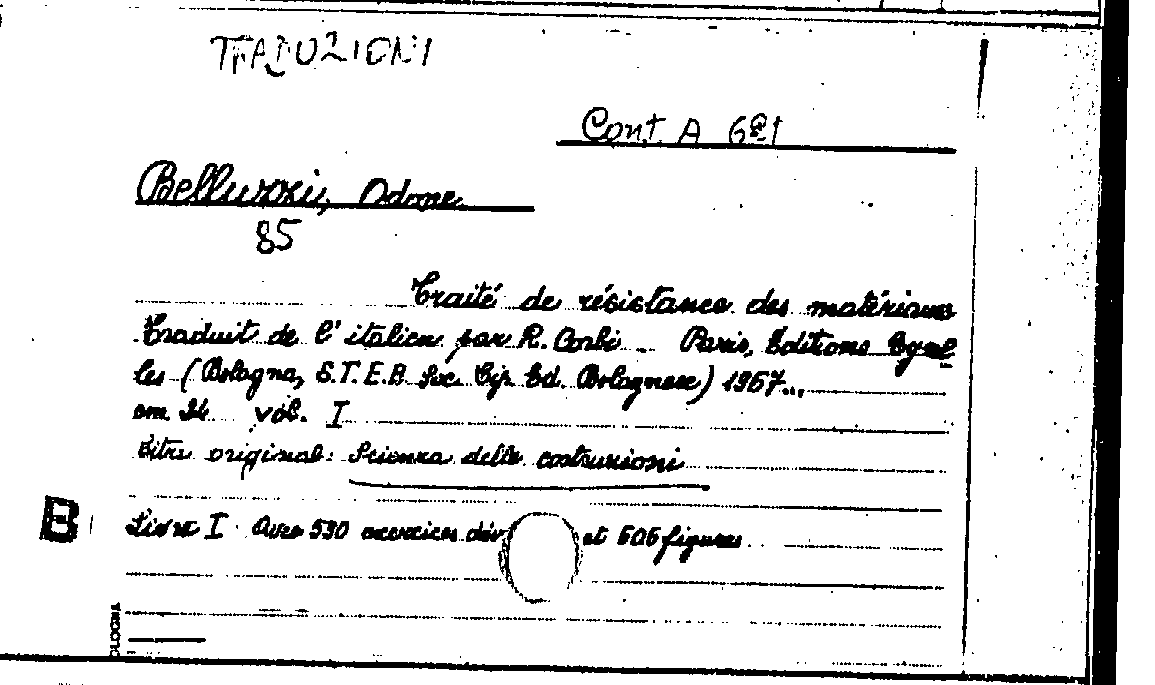 TRADUZIONI
Cont. A 621
Belluzzi, Odone
85
Traité de résistance des matériaux
Traduit de l'italien par R. Corbi - Paris, Editions Eyrol
les (Bologna, S.T.E.B. Soc. Tip. Ed. Bolognese) 1967...
cm. 24 vol. I
titre original: Scienza delle costruzioni
B
Livre I Avec 530 exercices dév et 606 figures
OLOGNA